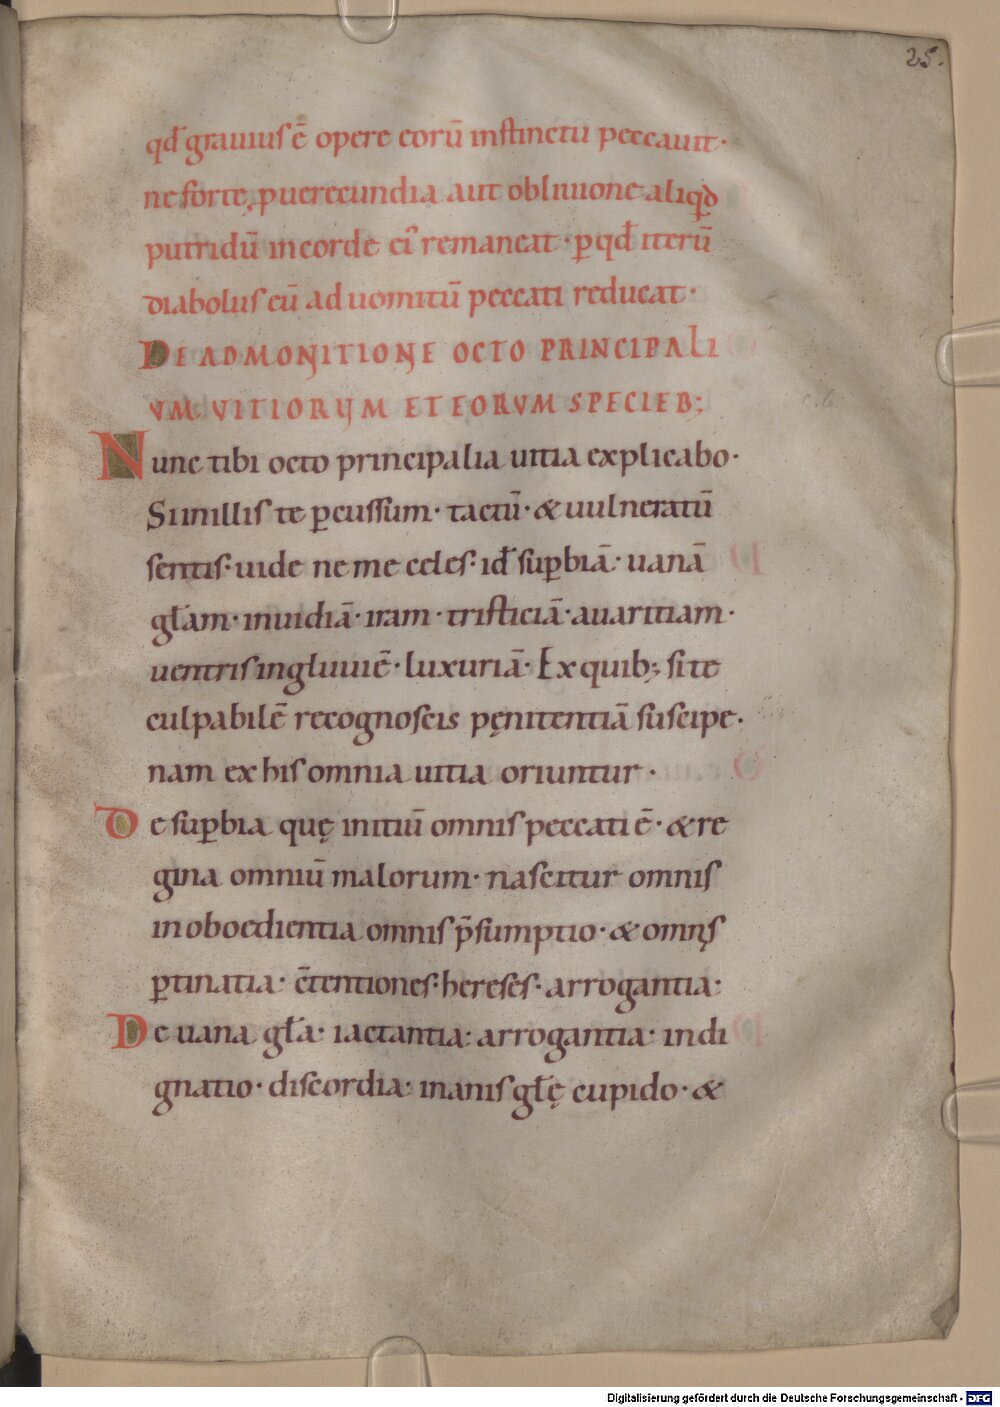 25.
qđ grauius ē opere eorū instinctu peccauit·
ne forte, puerecundia aut obliuione aliqđ
putridū in corde ei᾽ remaneat· ꝑqđ iterū
diabolus eū ad uomitū peccati reducat·
DE ADMONITIONE OCTO PRINCIPALI
VM VITIORVM ET EORVM SPECIEB;
Nunc tibi octo principalia uitia explicabo·
Si in illis te ꝑcussum· tactū· & uulneratū
sentis· uide ne me celes· id̄ suꝑbiā· uanā
gł̄am· inuidiā· iram· tristiciā· auaritiam·
uentris ingluuiē· luxuriā· Ex quib; si te
culpabilē recognoscis pęnitentiā suscipe·
nam ex his omnia uitia oriuntur·
De suꝑbia quę initiū omnis peccati ē· & re
gina omniū malorum· nascitur omnis
inoboedientia omnis p̄sumptio· & omnis
ꝑtinatia· c̄tentiones· hereses· arrogantia·
De uana gł̄a· iactantia· arrogantia· indi
gnatio· discordia· inanis gł̄ę cupido· &
c. 6.
Digitalisierung gefördert durch die Deutsche Forschungsgemeinschaft - DFG